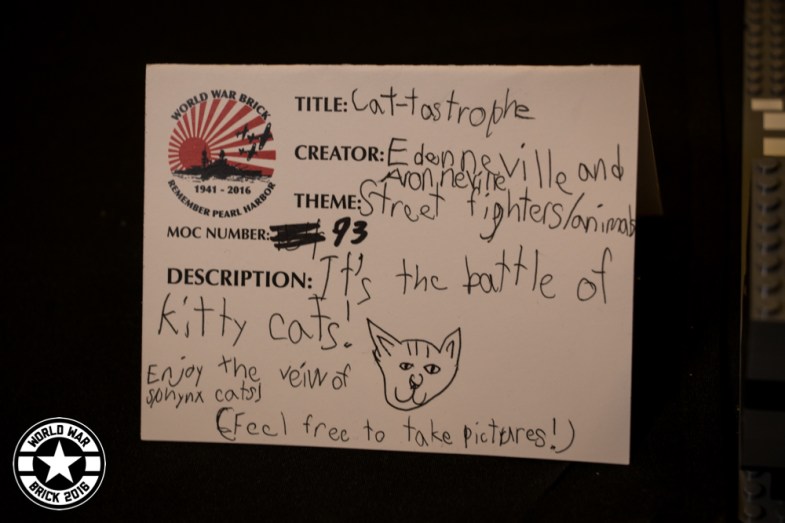 WORLD WAR BRICK
1941 - 2016
REMEMBER PEARL HARBOR
TITLE: Cat-tastrophe
CREATOR: Edenneville and
Avonneville
THEME: Street fighters/animals
MOC NUMBER: 93
DESCRIPTION: It's the battle of
kitty cats!
Enjoy the veiw of
sphynx cats!
(Feel free to take pictures!)
WORLD WAR
BRICK 2016